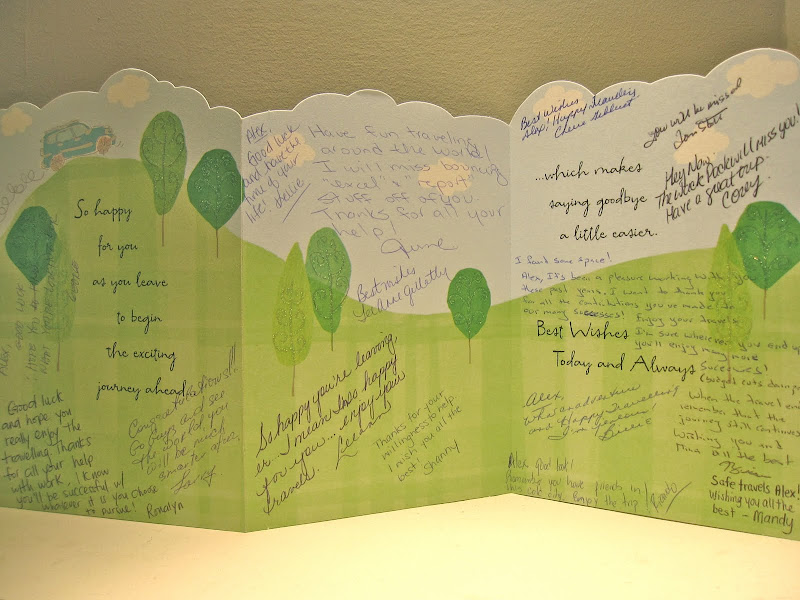 So happy
for you
as you leave
to begin
the exciting
journey ahead
Alex,
GOOD LUCK
Good luck
and hope you
really enjoy the
travelling. Thanks
for all your help
with work. I know
you'll be successful w/
whatever it is you choose
to pursue! Ronalyn
Congratulations!!!
Go forth and see
the world you
will be much
smarter after.
Alex,
Good luck
and have the
time of your
life!
Have fun traveling
around the world!
I will miss bouncing
"excel" & "report"
stuff off of you.
Thanks for all your
help!
Best wishes
So happy you're leaving,
er... I mean I'm so happy
for you... enjoy your
travels.
Thanks for your
willingness to help
I wish you all the
best!
Sherry
Best Wishes
Alex! Happy Travels,
You will be missed
Hey Now,
The Week Pack will miss you!
Have a great trip.
Corey
...which makes
saying goodbye
a little easier.
I found some space!
Alex, It's been a pleasure working with you
these past years. I want to thank you
for all the contributions you've made to
our many successes! Enjoy your travels.
I'm sure wherever you end up
you'll enjoy many more
successes!
Best Wishes
Today and Always
Alex,
What an adventure
and Happy Travels
When the travel ends
remember that the
journey still continues
Wishing you and
all the best
Alex good luck!
you have friends in
Enjoy the trip!
Safe travels Alex!
Wishing you all the
best - Mandy